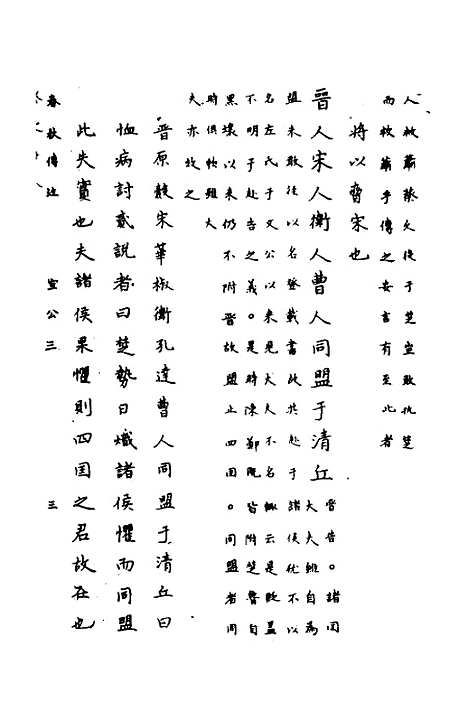 人救蕭蔡久從于楚豈敢抗楚
而救蕭乎傳之妄言有至此者
將以脅宋也
晉人宋人衛人曹人同盟于清丘
晉告。諸国
大夫雖自為
盟未敢徑以名登載書故共赴于諸侯仍不以
名左氏于文公以來見大夫不名輒云是貶蓋
不明于赴告之義。是時陳鄭既皆附楚魯自
黑壤以來仍不附晉故盟止四国。同盟者同
時俱雖大
夫亦故之
晉原縠宋華椒衛孔達曹人同盟于清丘曰
恤病討貳說者曰楚勢日熾諸侯懼而同盟
此失實也夫諸侯果懼則四国之君故在也
春秋傳註 宣公三 三